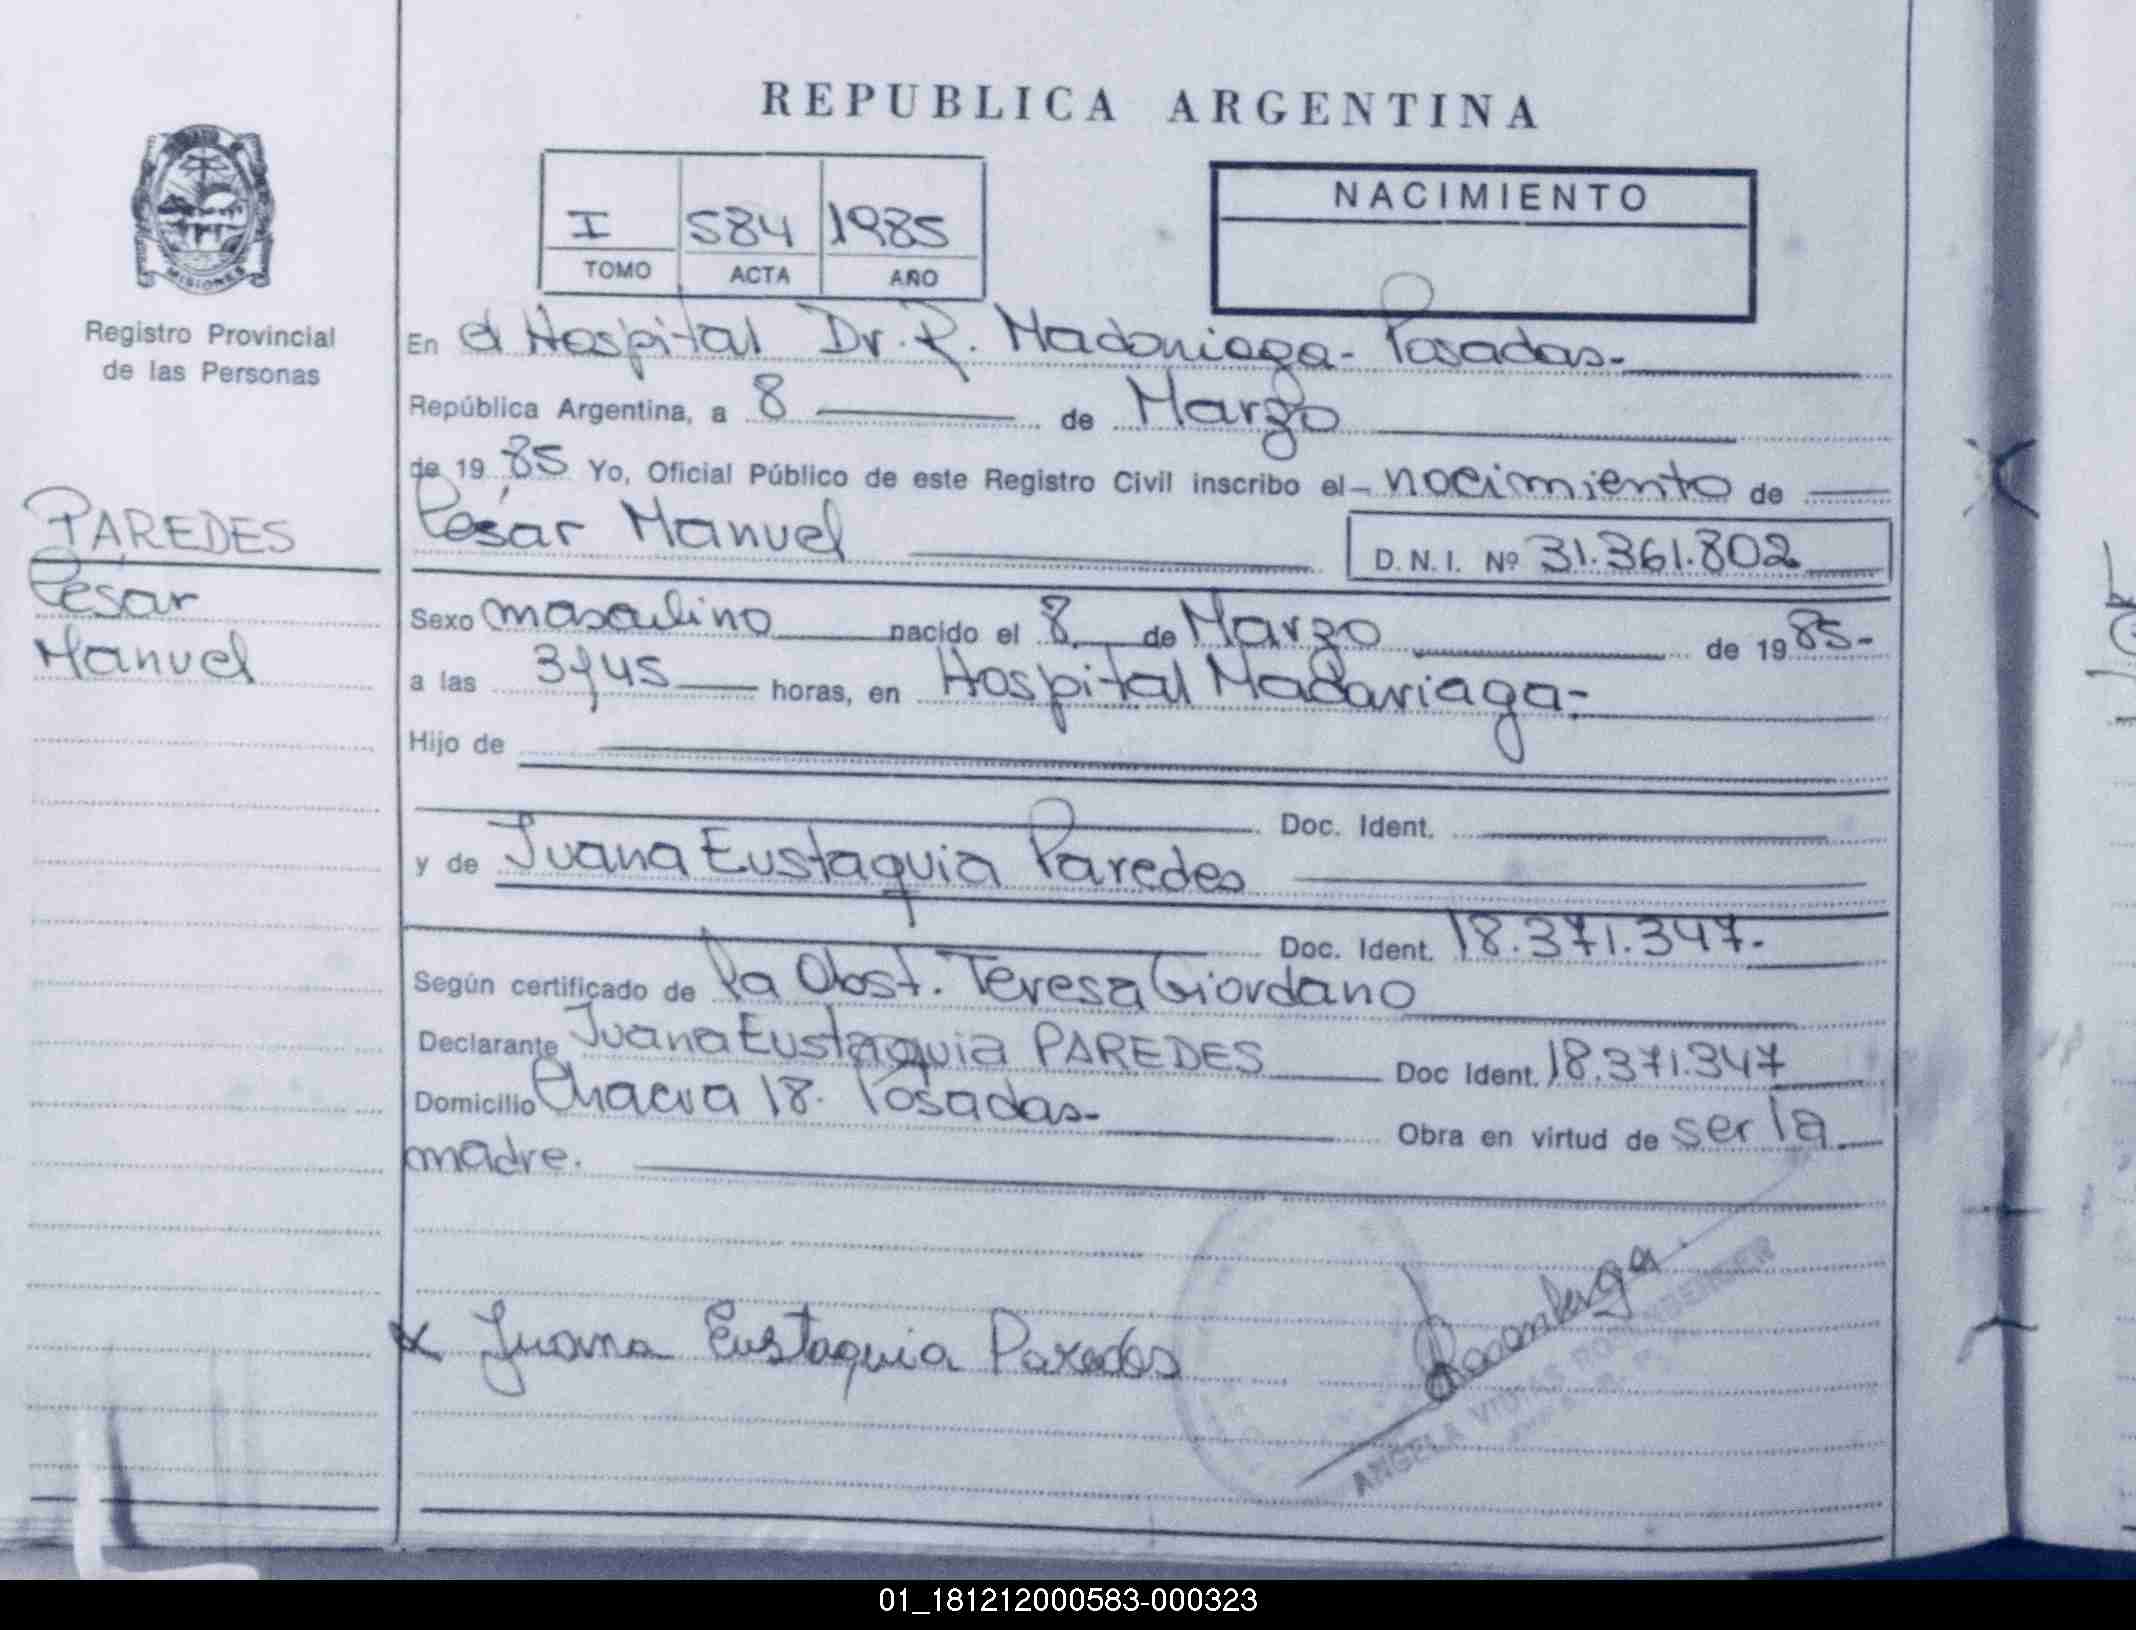 REPUBLICA ARGENTINA
I 584 1985
TOMO ACTA AÑO
NACIMIENTO
MISIONES
Registro Provincial
de las Personas
PAREDES
César
Manuel
En el Hospital Dr. R. Madariaga - Posadas.-
República Argentina, a 8 de Marzo
de 19 85 Yo, Oficial Público de este Registro Civil inscribo el - nacimiento de
César Manuel D.N.I. Nº 31.361.802
Sexo masculino nacido el 8 de Marzo de 19 85-
a las 3y45 horas, en Hospital Madariaga-
Hijo de
Doc. Ident.
y de Juana Eustaquia Paredes
Doc. Ident. 18.371.347.-
Según certificado de la Obst. Teresa Giordano
Declarante Juana Eustaquia PAREDES Doc Ident. 18.371.347
Domicilio Chacra 18. Posadas-
Obra en virtud de ser la
madre.
x Juana Eustaquia Paredes
ANGELA
01_181212000583-000323